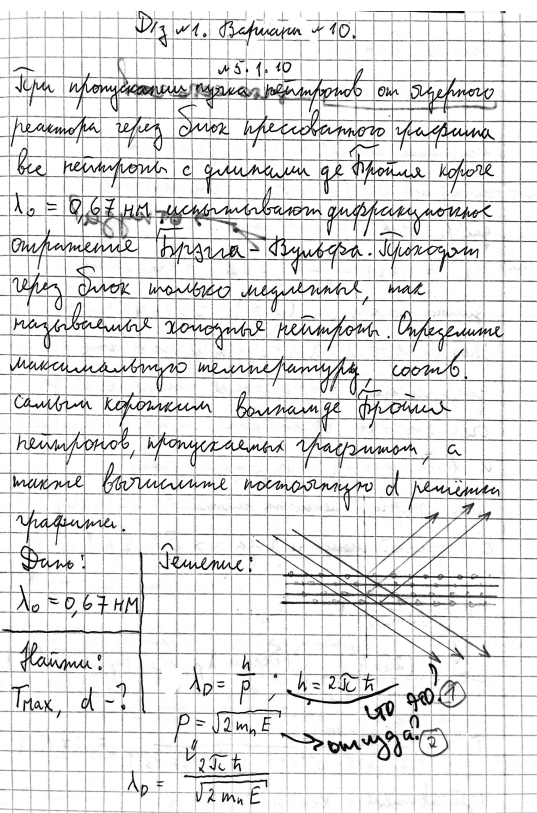 Д/з №1. Вариант №10.
№5.1.10
При пропускании пучка нейтронов от ядерного
реактора через блок прессованного графита
все нейтроны с длинами де Бройля короче
λ₀ = 0,67 нм испытывают дифракционное
отражение Брэгга - Вульфа. Проходят
через блок только медленные, так
называемые холодные нейтроны. Определите
максимальную температуру, соотв.
самым коротким волнам де Бройля
нейтронов, пропускаемых графитом, а
также вычислите постоянную d решётки
графита.
Дано:
λ₀ = 0,67 нм
Найти:
Tmax, d - ?
Решение:
λ_D = h/p ; h = 2πħ
что это? 1
p = √(2mₙE) → откуда? 2
⇓
λ_D = 2πħ/√(2mₙE)